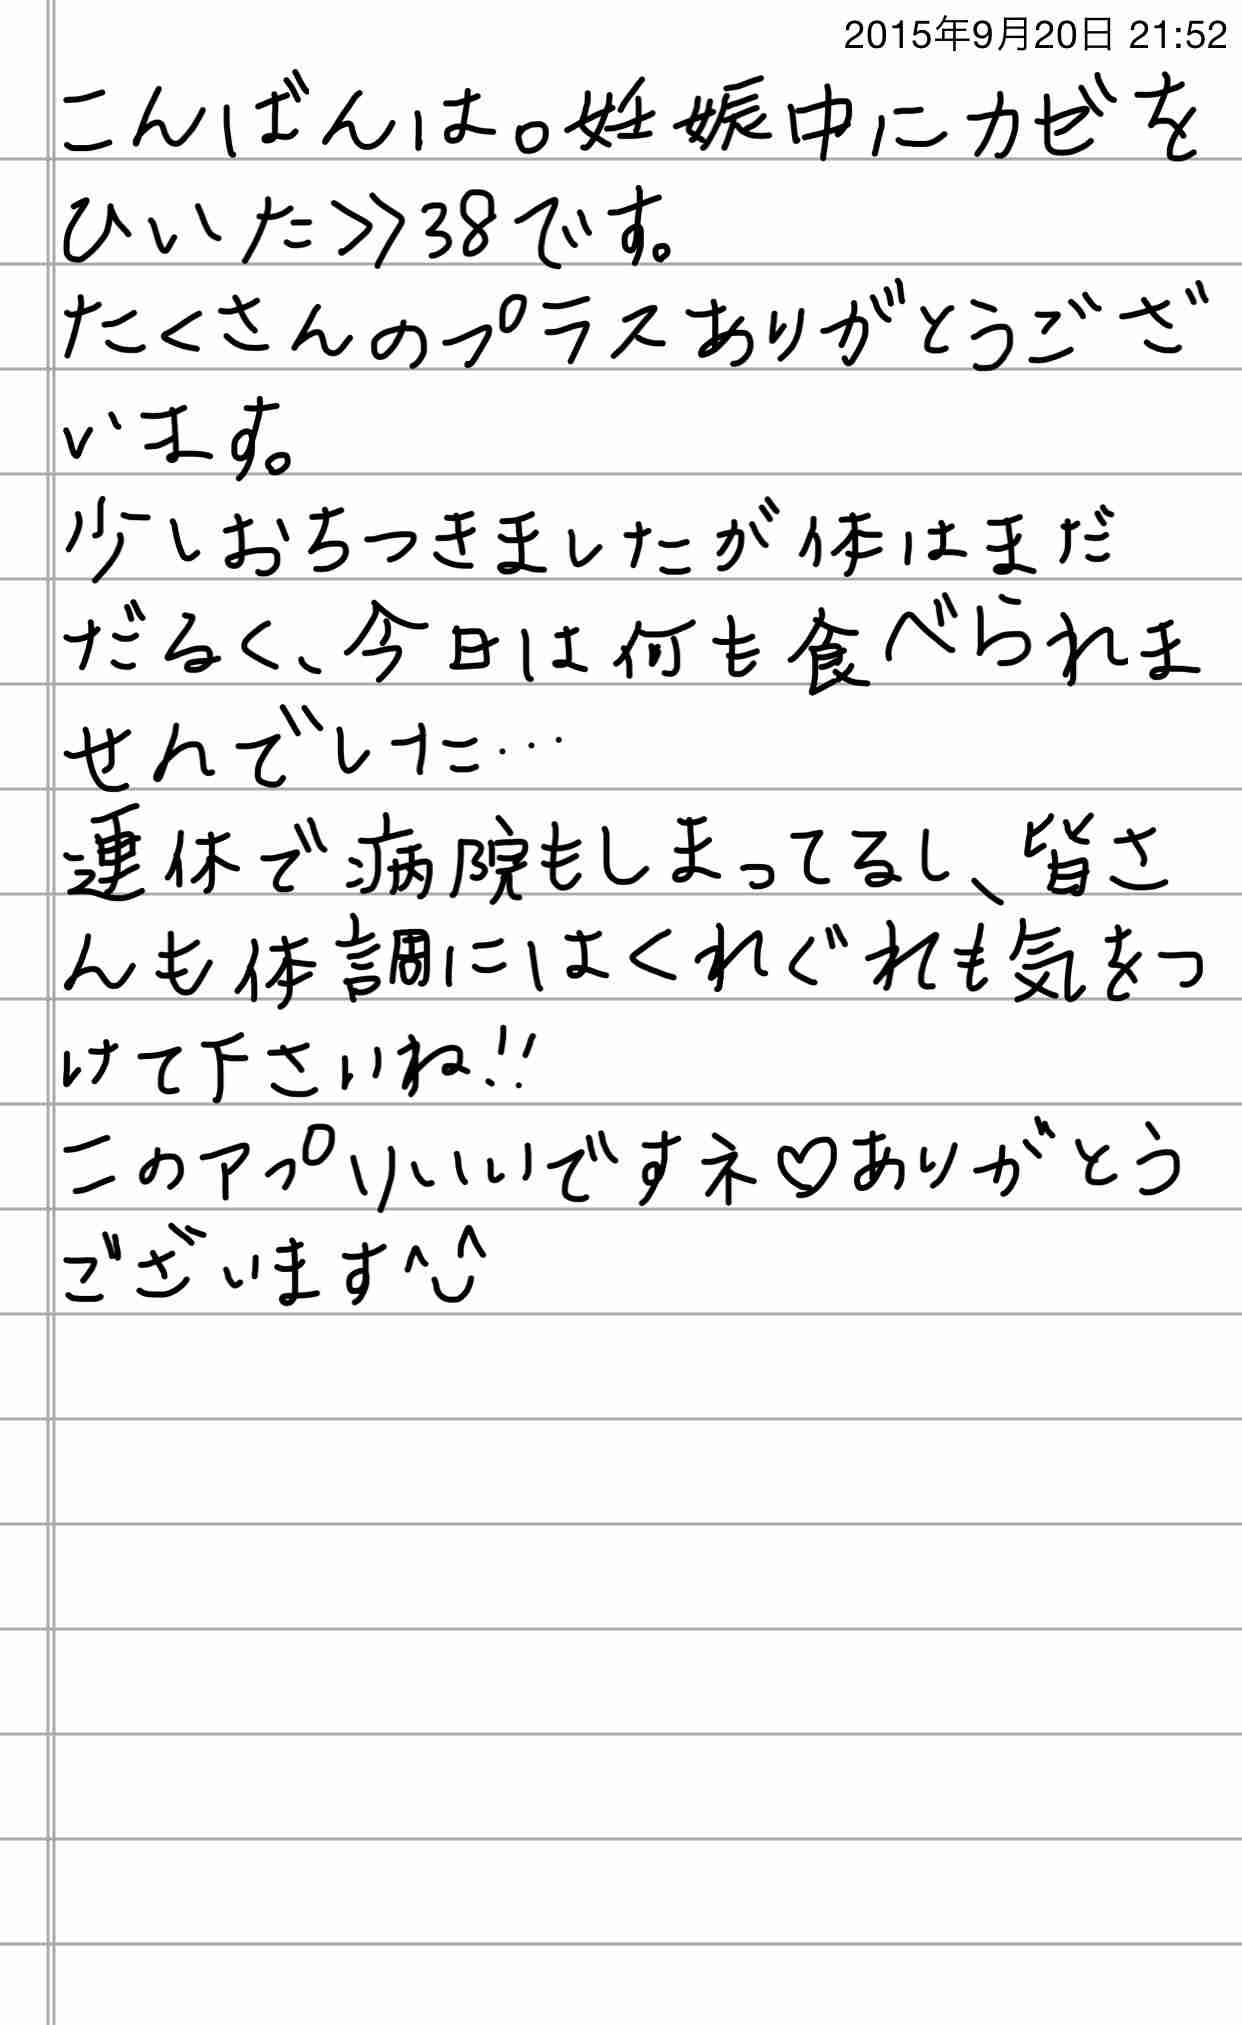 2015年9月20日 21:52
こんばんは。妊娠中にカゼを
ひいた>>38です。
たくさんのプラスありがとうござ
います。
少しおちつきましたが体はまだ
だるく、今日は何も食べられま
せんでした…
連休で病院もしまってるし、皆さ
んも体調にはくれぐれも気をつ
けて下さいね!!
このアプリいいですネ♡ありがとう
ございます^◡^